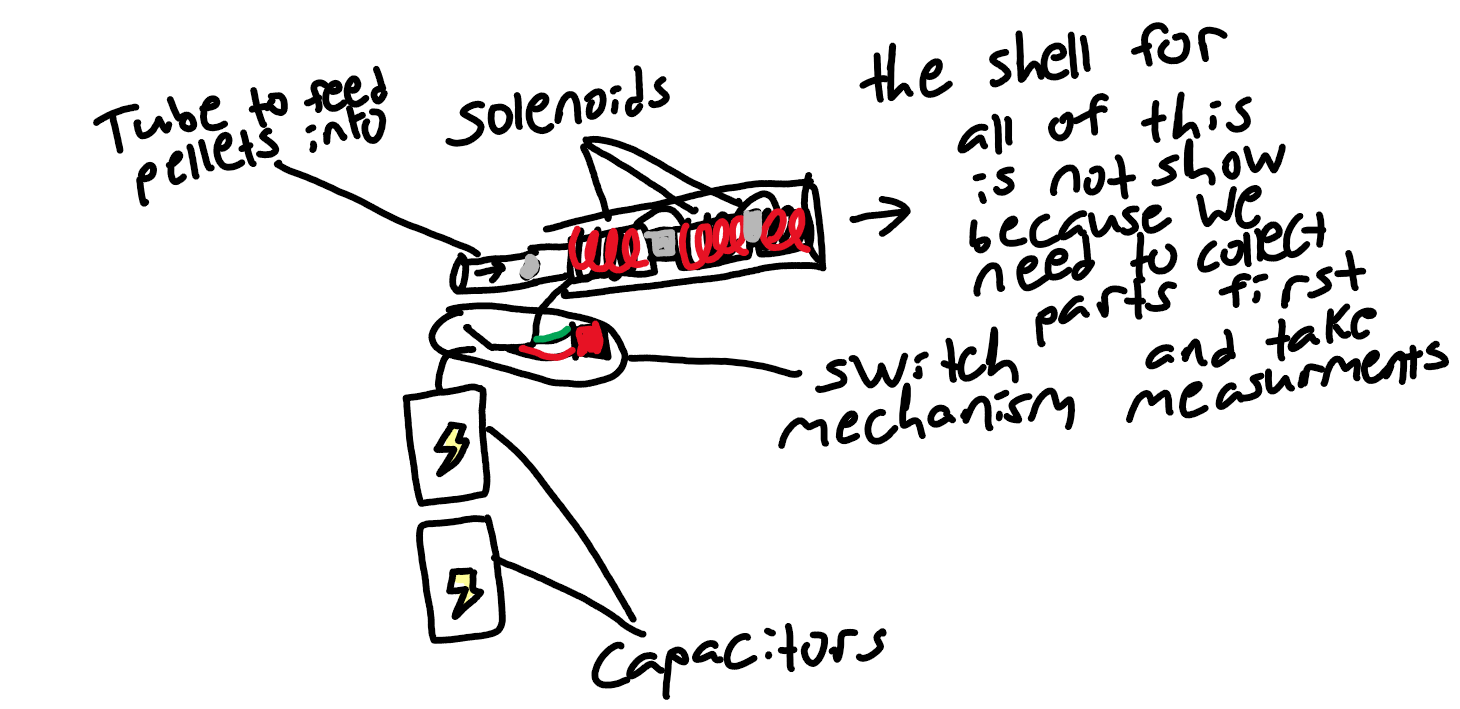 Tube to feed
pellets into
Solenoids
the shell for
all of this
is not show
because we
need to collect
parts first
and take
measurments
switch
mechanism
Capacitors